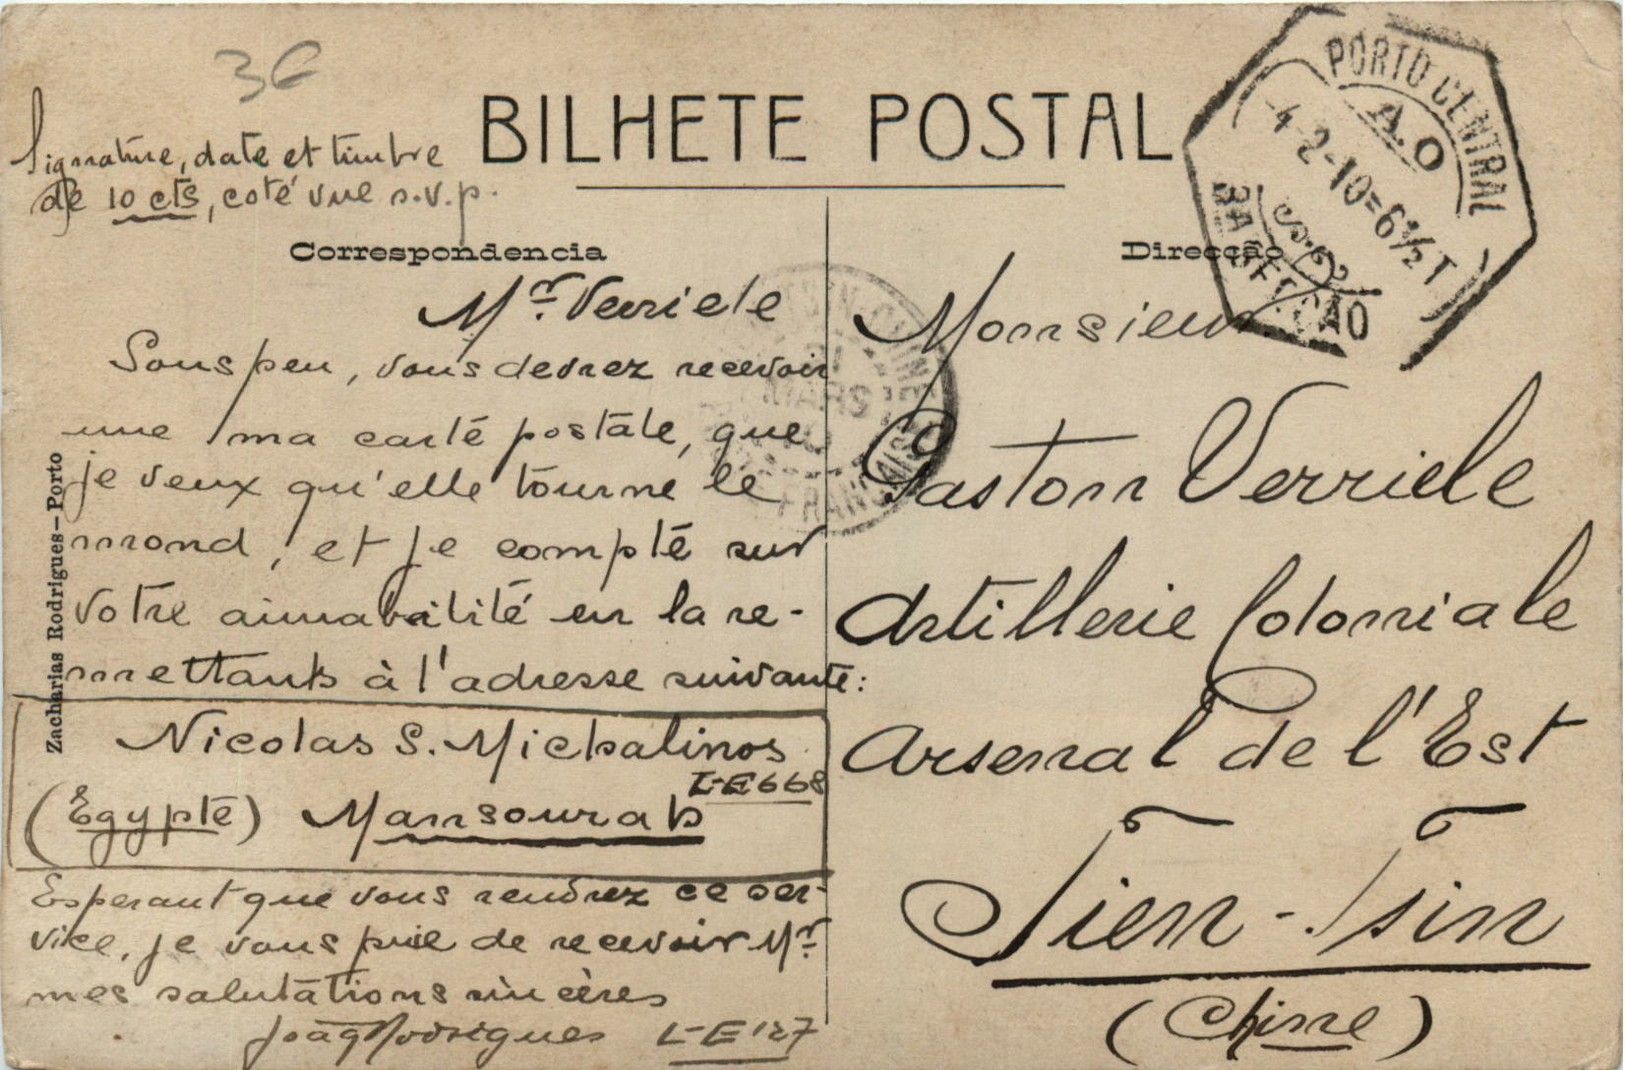 3€
Signature, date et timbre
de 10 cts, coté vue s.v.p.
BILHETE POSTAL
PORTO CENTRAL
A.O
4-2-10=6½T
3A SECÇÃO
Correspondencia
Direcção
Mr. Verriele
Sous peu, vous devrez recevoir
une ma carté postale, que
je veux qu'elle tourne le
mond, et je compté sur
votre aimabilité en la re-
mettants à l'adresse suivante:
Nicolas S. Michalinos
L-E 668
(Egypte) Mansourah
Esperant que vous rendrez ce ser-
vice, je vous prie de recevoir Mr.
mes salutations sincères
Rodrigues L-E 127
Zacharias Rodrigues-Porto
CHINE
MARS
Monsieur
Gaston Verriele
Artillerie Coloniale
Arsenal de l'Est
Tien-Tsin
(Chine)